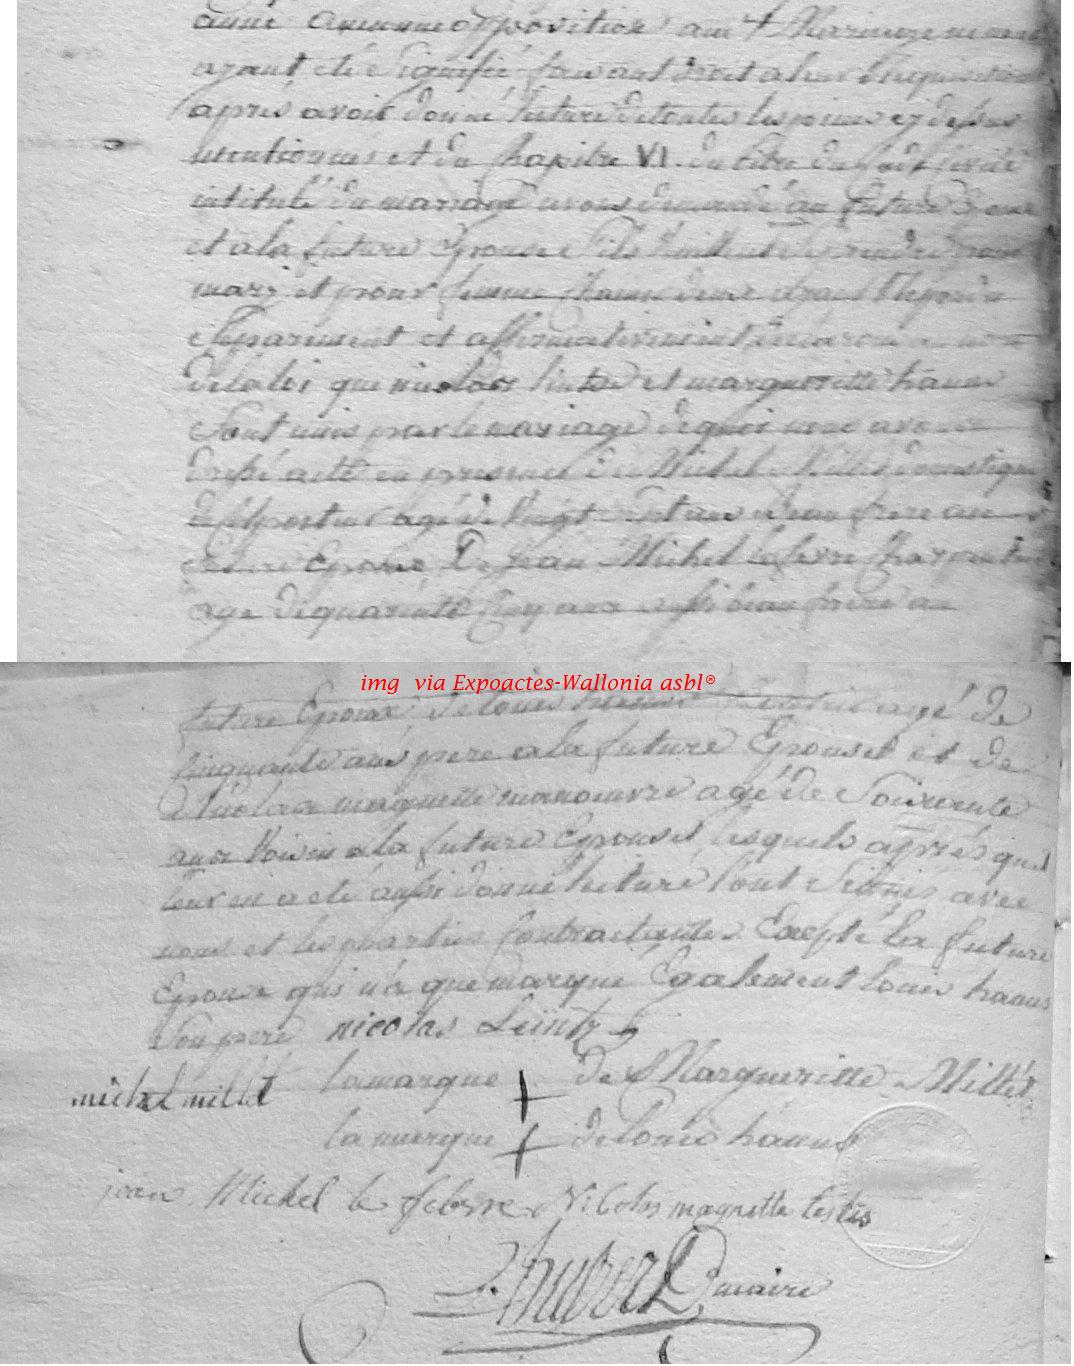 année aucunne opposition au t Mariage ne nous
ayant eté signifié faisant droit a leur requisition
apres avoir donné lecture de toutes les pieces cy dessus
mentionnees et du Chapitre VI. du titre du Code Civile
intitulé du mariage avons demandé au future Epoux
et a la future Epouse s'ils veullent se prendre pour
mary et pour femme chacun deux ayant repondu
separement et affirmativement declarons au nom
de la loi que nicolas lintz et margueritte hanus
sont unis par le mariage de quoi nous avons
dressé acte en presence de Michel Millet domestique
agé de vingt sept ans beau frere au
future Epoux De jean Michel lefevre Charpentier
agé de quarente cinq ans aussi beau frere au
img via Expoactes-Wallonia asbl®
future Epoux de louis hanus agé de
cinquante ans pere a la future Epouse et de
Nicolas magnette manoeuvre agé de Soixante
ans voisin a la future Epouse lesquels après quil
leur en a eté aussi donné lecture l'ont Signé avec
nous et les parties contractantes Excepté la future
Epouse qui n'a que marque Egalement louis hanus
son pere nicolas Leintz
michel millet la marque + de Margueritte Millet
la marque + de louis hanus
jean Michel le febvre Nicolas magnette testis
Hubert maire